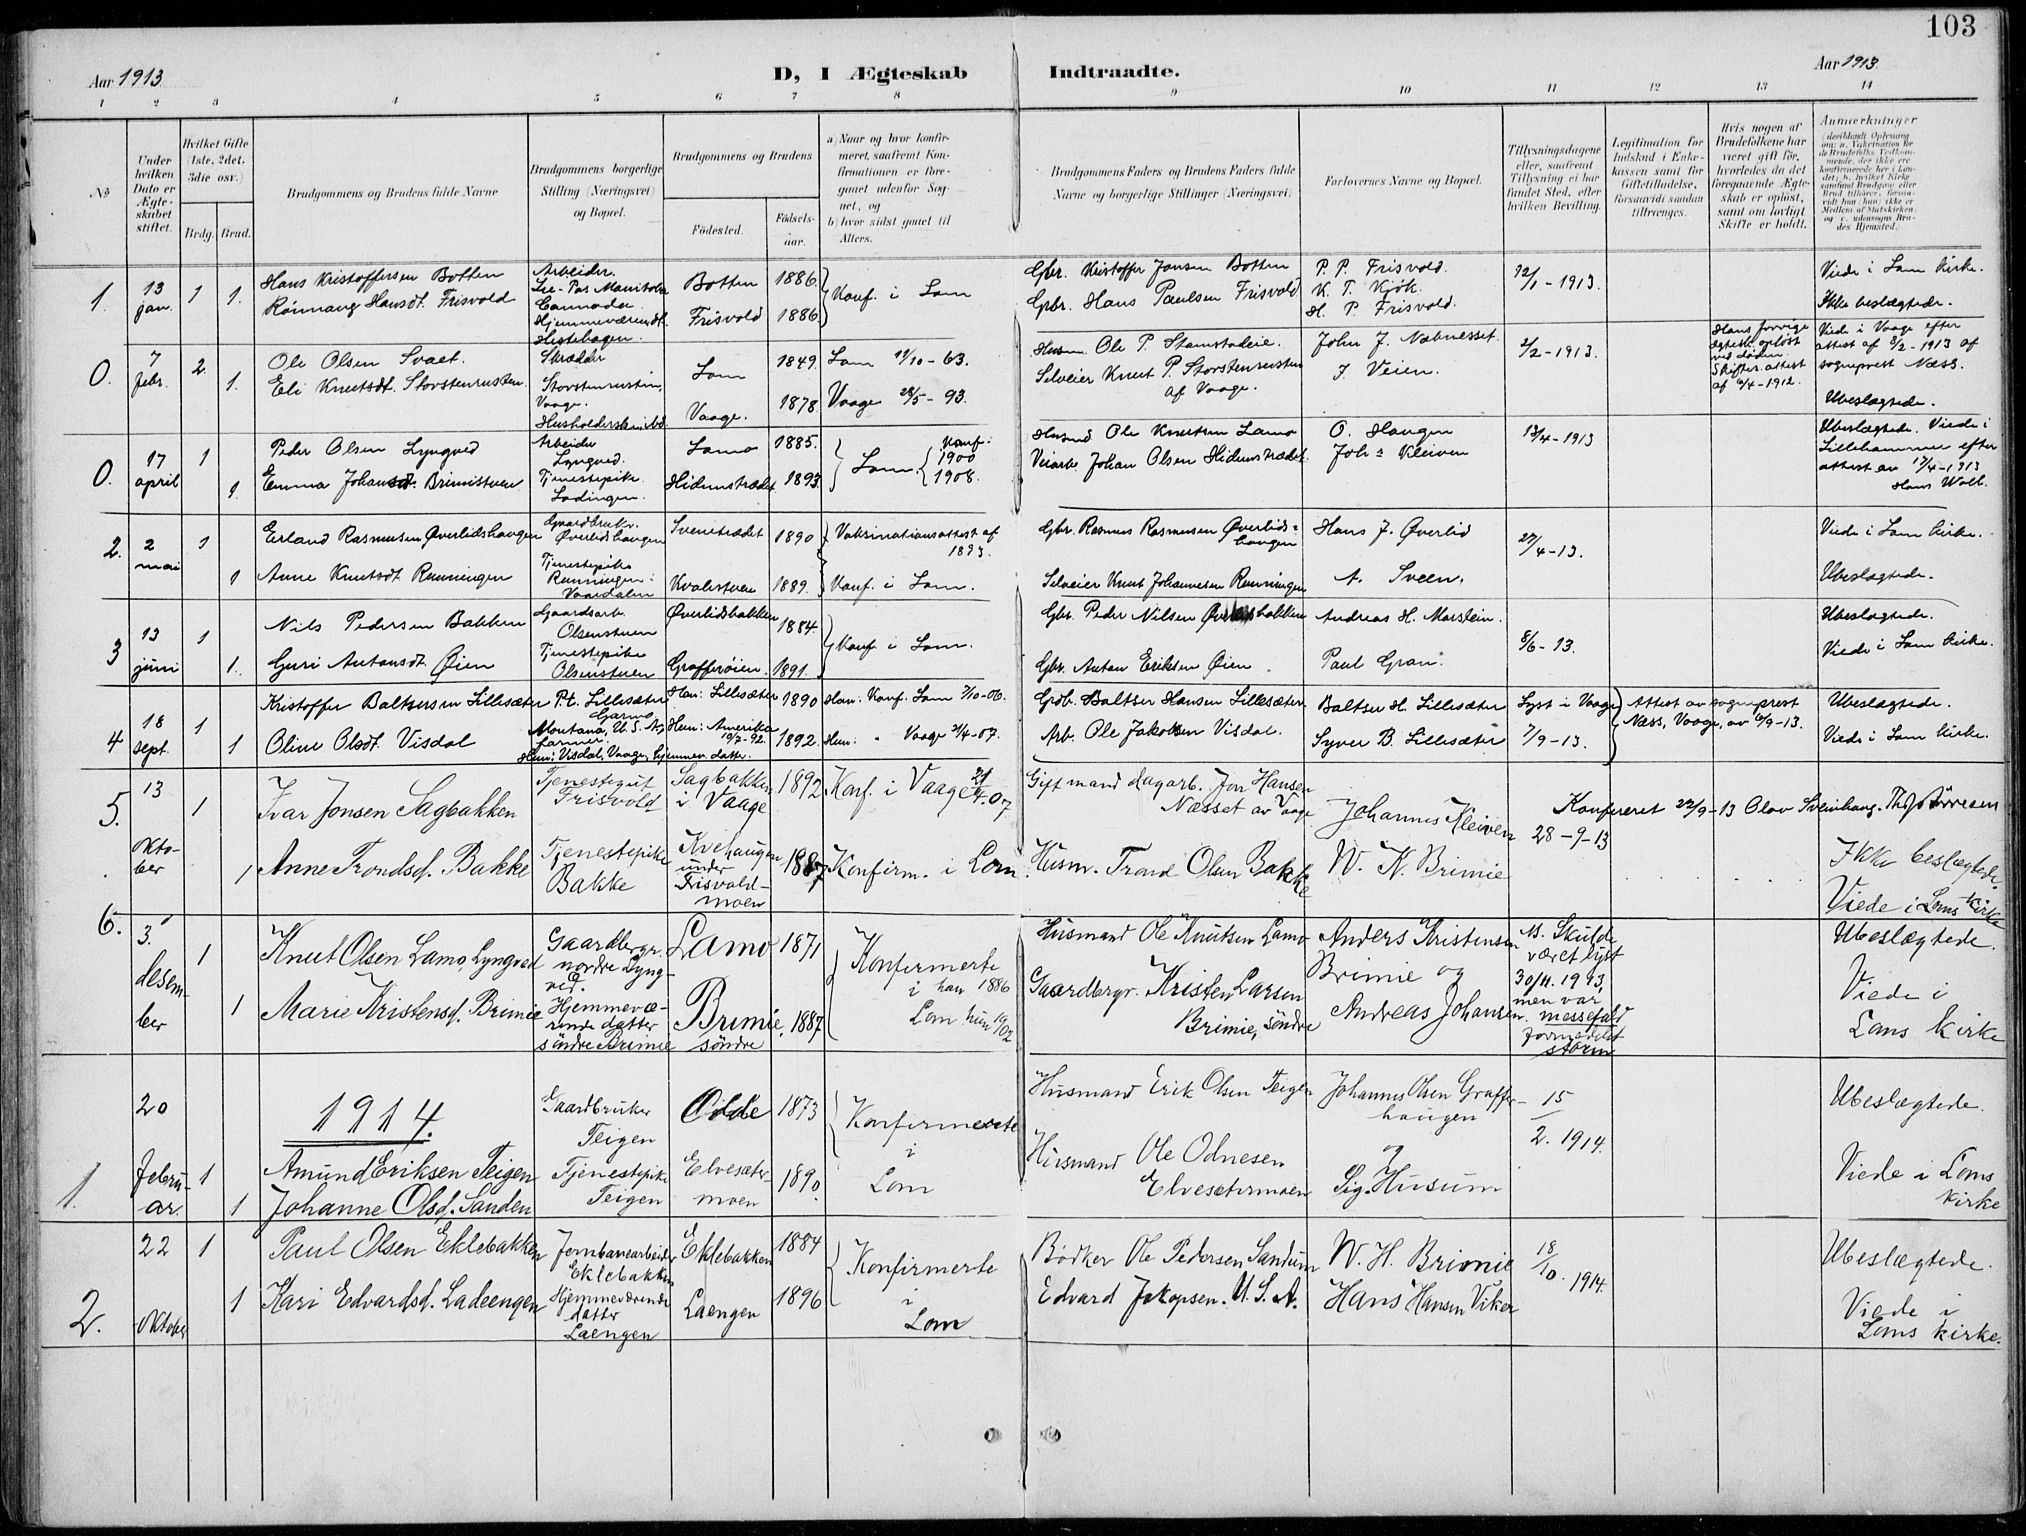 103
Aar 1913.
D, I Ægteskab Indtraadte.
Aar 1913.
1 2 3 4 5 6 7 8 9 10 11 12 13 14
No
Under hvilken Dato er Ægteskabet stiftet.
Hvilket Gifte (1ste, 2det, 3die osv.)
Brdg. Brud.
Brudgommens og Brudens fulde Navne
Brudgommens borgerlige Stilling (Næringsvei) og Bopæl.
Brudgommens og Brudens
Födested.
Födselsaar.
a) Naar og hvor konfirmeret, saafremt Konfirmationen er foregaaet udenfor Sognet, og
b) hvor sidst gaaet til Alters.
Brudgommens Faders og Brudens Faders fulde Navne og borgerlige Stillinger (Næringsvei).
Forlovernes Navne og Bopæl.
Tillysningsdagene eller, saafremt Tillysning ei har fundet Sted, efter hvilken Bevilling.
Legitimation for Indskud i Enkekassen samt for Giftetilladelse, forsaavidt saadan tiltrænges.
Hvis nogen af Brudefolkene har været gift för, hvorledes da det foregaaende Ægteskab er oplöst, samt om lovligt Skifte er holdt.
Anmærkninger
1. 13 jan. 1 1.
Hans Kristoffersen Botten
Rönnaug Hansdt. Frisvold
Arbeider.
Canada
Hjemmeværende dt.
Hestehagen.
Botten 1886.
Frisvold 1886.
Konf. i Lom
Gbr. Kristoffer Jonsen Botten
Gbr. Hans Paulsen Frisvold
P. P. Frisvold.
K. T. Kjök.
H. P. Frisvold.
12/1 - 1913.
Viede i Lom kirke.
Ikke beslægtede.
0. 7 febr. 2. 1.
Ole Olsen Svaet.
Eli Knutsdt. Storstenrusten.
Skrædder
Storstenrusten,
Vaage.
Lom 1849.
Vaage. 1878
Lom 11/10 - 63.
Vaage 28/5 - 93.
Husm. Ole P. Stamstadeie.
Selveier Knut P. Storstenrusten
af Vaage.
John J. Nabnesset.
J. Veien.
2/2 - 1913.
Hans forrige
egtesk. oplöst
ved döden.
Skifter. attest
af 6/4 - 1912.
Viede i Vaage efter
attest af 8/2 - 1913 af
sogneprest Næss.
Ubeslægtede.
0. 17 april 1 1.
Peder Olsen Lyngved
Emma Johansdt. Brimistuen
Arbeider
Lyngved.
Tjenestepike
Ladingen.
Lamo 1885.
Hidemstrædet 1893.
Lom. Konf. 1900 1908.
Husmd Ole Knutsen Lamo
Veiarb. Johan Olsen Hidemstrædet.
O. Haugen
Johs Kleiven
13/4 - 1913
Ubeslægtede. Viede i
Lillehammer efter
attest av 17/4 - 1913
Hans Woll.
2. 2 mai 1 1
Erland Rasmussen Överlidshaugen
Anne Knutsdt Rønningen
Gaardbruker.
Överlidshaugen
Tjenestepike
Rønningen i
Vaardalen
Sveitrædet 1890
Kvalestuen 1889.
Vaksinationsattest af
1893.
Konf. i Lom.
Gbr. Rasmus Rasmussen Överlids-
haugen
Selveier Knut Johannesen Rønningen
Hans J. Överlid
A. Sveen.
27/4 - 13.
Viede i Lom kirke.
Ubeslægtede.
3 13 juni 1 1.
Nils Pedersen Bakken
Guri Antonsdt. Öien
Gaardsarb.
Olsenstuen
Tjenestepike
Olsenstuen
Överlidsbakken 1884.
Grafferöien. 1891.
Konf. i Lom.
Gbr. Peder Nilsen
Gbr. Anton Eriksen Öien.
Andreas H. Marstein.
Paul Gran.
8/6 - 13.
Ubeslægtede.
Viede i Lom kirke.
4 18 sept. 1 1
Kristoffer Baltsersen Lillesæter
Oline Olsdt. Visdal
P.t. Lillesæter
Garmo,
Montana, U.S.A.,
farmer.
Hun: Visdal, Vaage, hjemmev. datter.
Han: Lillesæter 1890
Hun: Amerika
10/7 - 92. 1892
Han: Konf. Lom 7/10 - 06.
Hun: " Vaage 21/4 - 07.
Grdb. Baltser Hansen Lillesæter
Arb. Ole Jakobsen Visdal.
Baltser H. Lillesæter
Syver B. Lillesæter
Lyst i Vaage
7/9 - 13.
Attest av sogneprest
Næss, Vaage, av 6/9 - 13.
Ubeslægtede.
Viede i Lom kirke.
5. 13 Oktober 1 1
Ivar Jonsen Sagbakken
Anne Trondsd. Bakke
Tjenestegut
Frisvold
Tjenestepike
Bakke
Sagbakken
i Vaage 1892
Kvehaugen
under
Frisvold-
moen 1887
Konf. i Vaage 21/4. 07
Konfirm. i Lom
Gift mand dagarb. Jon Hansen
Næsset av Vaage
Husm. Trond Olsen Bakke
Johannes Kleiven
W. K. Brimie
Konfereret 22/9 - 13 Olov Sveinhaug.
28 - 9 - 13
Ikke beslægtede.
Viede i Loms kirke
6. 3. desember 1 1
Knut Olsen Lamo, Lyngved
Marie Kristensd. Brimie
Gaardbergr.
nordre Lyng-
ved.
Hjemmevæ-
rende datter
söndre Brimie
Lamo 1871
Brimie, söndre 1887
Konfirmerte
i han 1886
Lom hun 1902
Husmand Ole Knutsen Lamo
Gaardbergr. Kristen Larsen
Brimie, söndre
Anders Kristensen
Brimie og
Andreas Johansen.
Skulde
været lyst
30/11. 1913,
men var
messefald
formedelst
storm
Ubeslægtede.
Viede i
Loms kirke
1914.
1. 20 Februar. 1 1
Amund Eriksen Teigen
Johanne Olsd. Sanden
Gaardbruker
Teigen
Tjenestepike
Teigen
Odde 1873
Elvesæter-
moen 1890.
Konfirmerte
i
Lom
Husmand Erik Olsen Teigen
Husmand Ole Odnesen
Elvesætermoen
Johannes Olsen Graffer-
haugen
og
Sig. Husum
15/2. 1914.
Ubeslægtede.
Viede i Loms
kirke
2. 22 Oktober 1 1
Paul Olsen Eklebakken
Kari Edvardsd. Ladeengen
Jernbanearbeider
Eklebakken
Hjemmeværende
datter
Laengen
Eklebakken 1884
Laengen 1896
Konfirmerte
i
Lom
Bödker Ole Pedersen Sandum
Edvard Jakopsen. U.S.A.
W. H. Brimie
Hans Hansen Viker
18/10. 1914.
Ubeslægtede.
Viede i
Loms kirke.